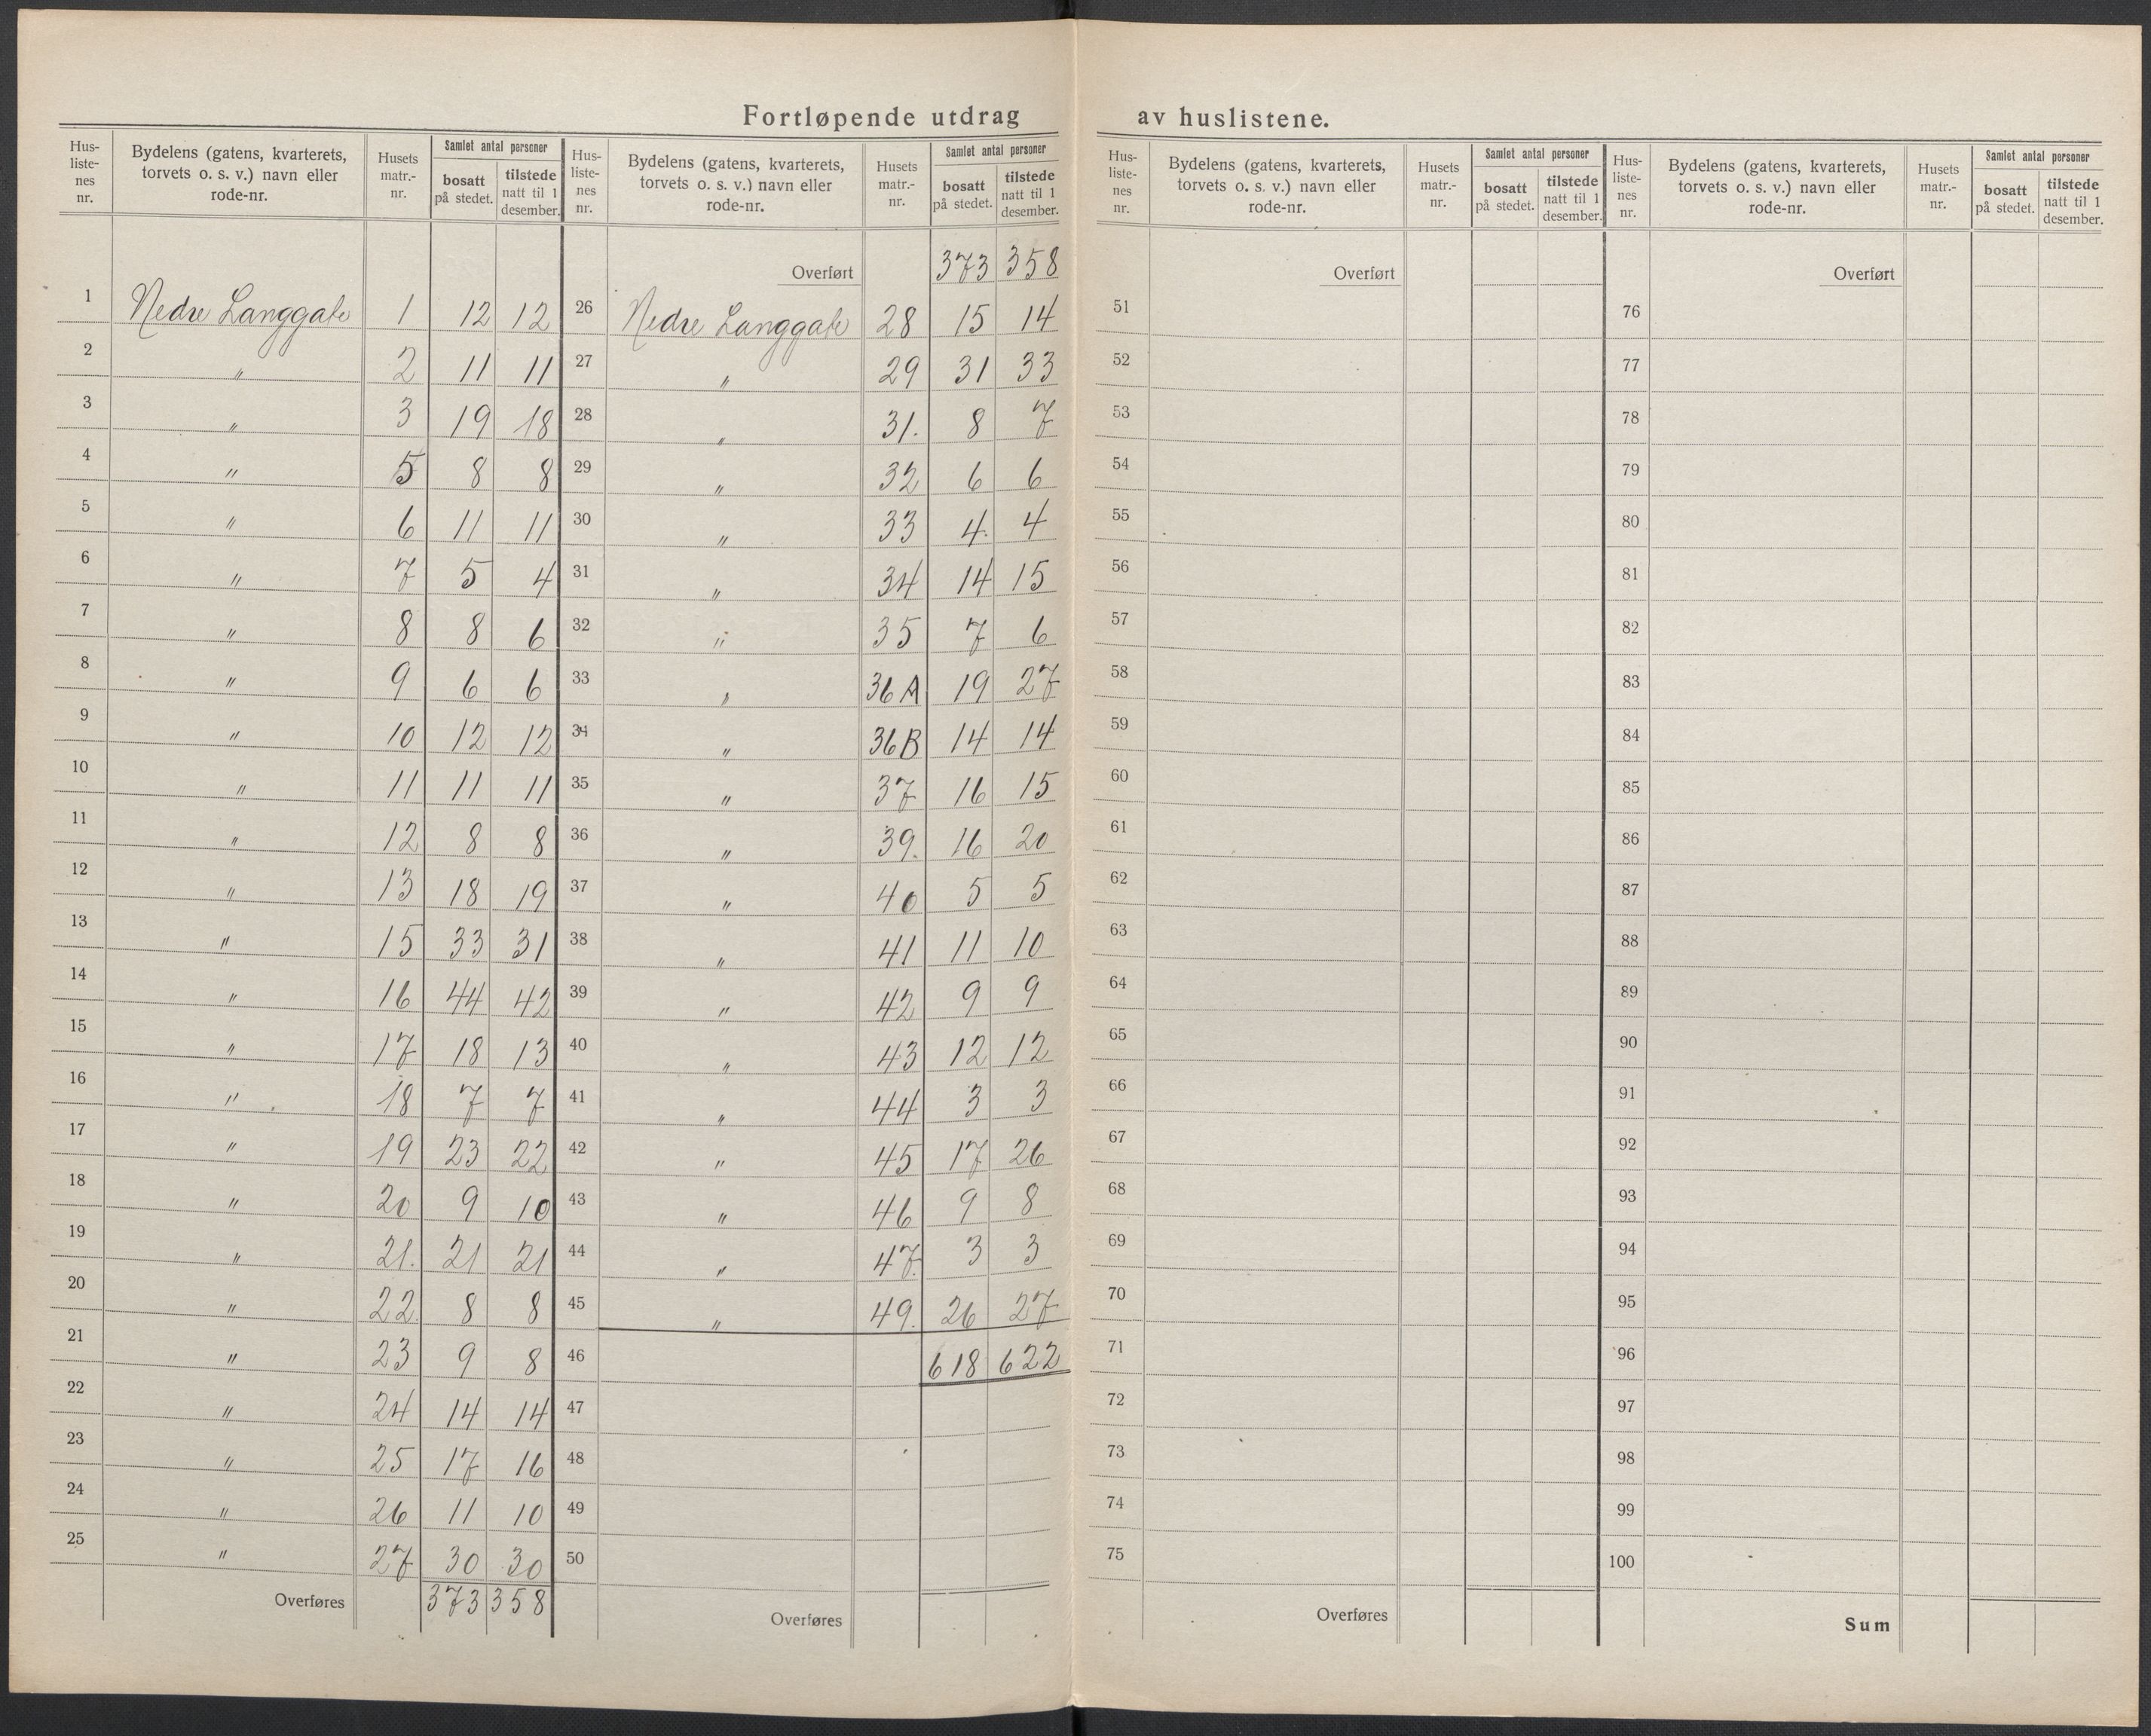 Fortløpende utdrag av huslistene.
Hus-liste-nes nr. | Bydelens (gatens, kvarterets, torvets o. s. v.) navn eller rode-nr. | Husets matr.-nr. | Samlet antal personer | bosatt på stedet. | tilstede natt til 1 desember.
1 Nedre Langgate 1 12 12
2 " 2 11 11
3 " 3 19 18
4 " 5 8 8
5 " 6 11 11
6 " 7 5 4
7 " 8 8 6
8 " 9 6 6
9 " 10 12 12
10 " 11 11 11
11 " 12 8 8
12 " 13 18 19
13 " 15 33 31
14 " 16 44 42
15 " 17 18 13
16 " 18 7 7
17 " 19 23 22
18 " 20 9 10
19 " 21. 21 21
20 " 22. 8 8
21 " 23 9 8
22 " 24 14 14
23 " 25 17 16
24 " 26 11 10
25 " 27 30 30
Overføres 373 358
Hus-liste-nes nr. | Bydelens (gatens, kvarterets, torvets o. s. v.) navn eller rode-nr. | Husets matr.-nr. | Samlet antal personer | bosatt på stedet. | tilstede natt til 1 desember.
Overført 373 358
26 Nedre Langgate 28 15 14
27 " 29 31 33
28 " 31. 8 7
29 " 32 6 6
30 " 33 4. 4
31 " 34 14 15
32 " 35 7 6
33 " 36A 19 27
34 " 36B 14 14
35 " 37 16 15
36 " 39. 16 20
37 " 40 5 5
38 " 41 11 10
39 " 42 9 9
40 " 43 12 12
41 " 44 3 3
42 " 45 17 26
43 " 46 9 8
44 " 47. 3 3
45 " 49. 26 27
46 618 622
47
48
49
50
Overføres
Hus-liste-nes nr. | Bydelens (gatens, kvarterets, torvets o. s. v.) navn eller rode-nr. | Husets matr.-nr. | Samlet antal personer | bosatt på stedet. | tilstede natt til 1 desember.
Overført
51
52
53
54
55
56
57
58
59
60
61
62
63
64
65
66
67
68
69
70
71
72
73
74
75
Overføres
Hus-liste-nes nr. | Bydelens (gatens, kvarterets, torvets o. s. v.) navn eller rode-nr. | Husets matr.-nr. | Samlet antal personer | bosatt på stedet. | tilstede natt til 1 desember.
Overført
76
77
78
79
80
81
82
83
84
85
86
87
88
89
90
91
92
93
94
95
96
97
98
99
100
Sum